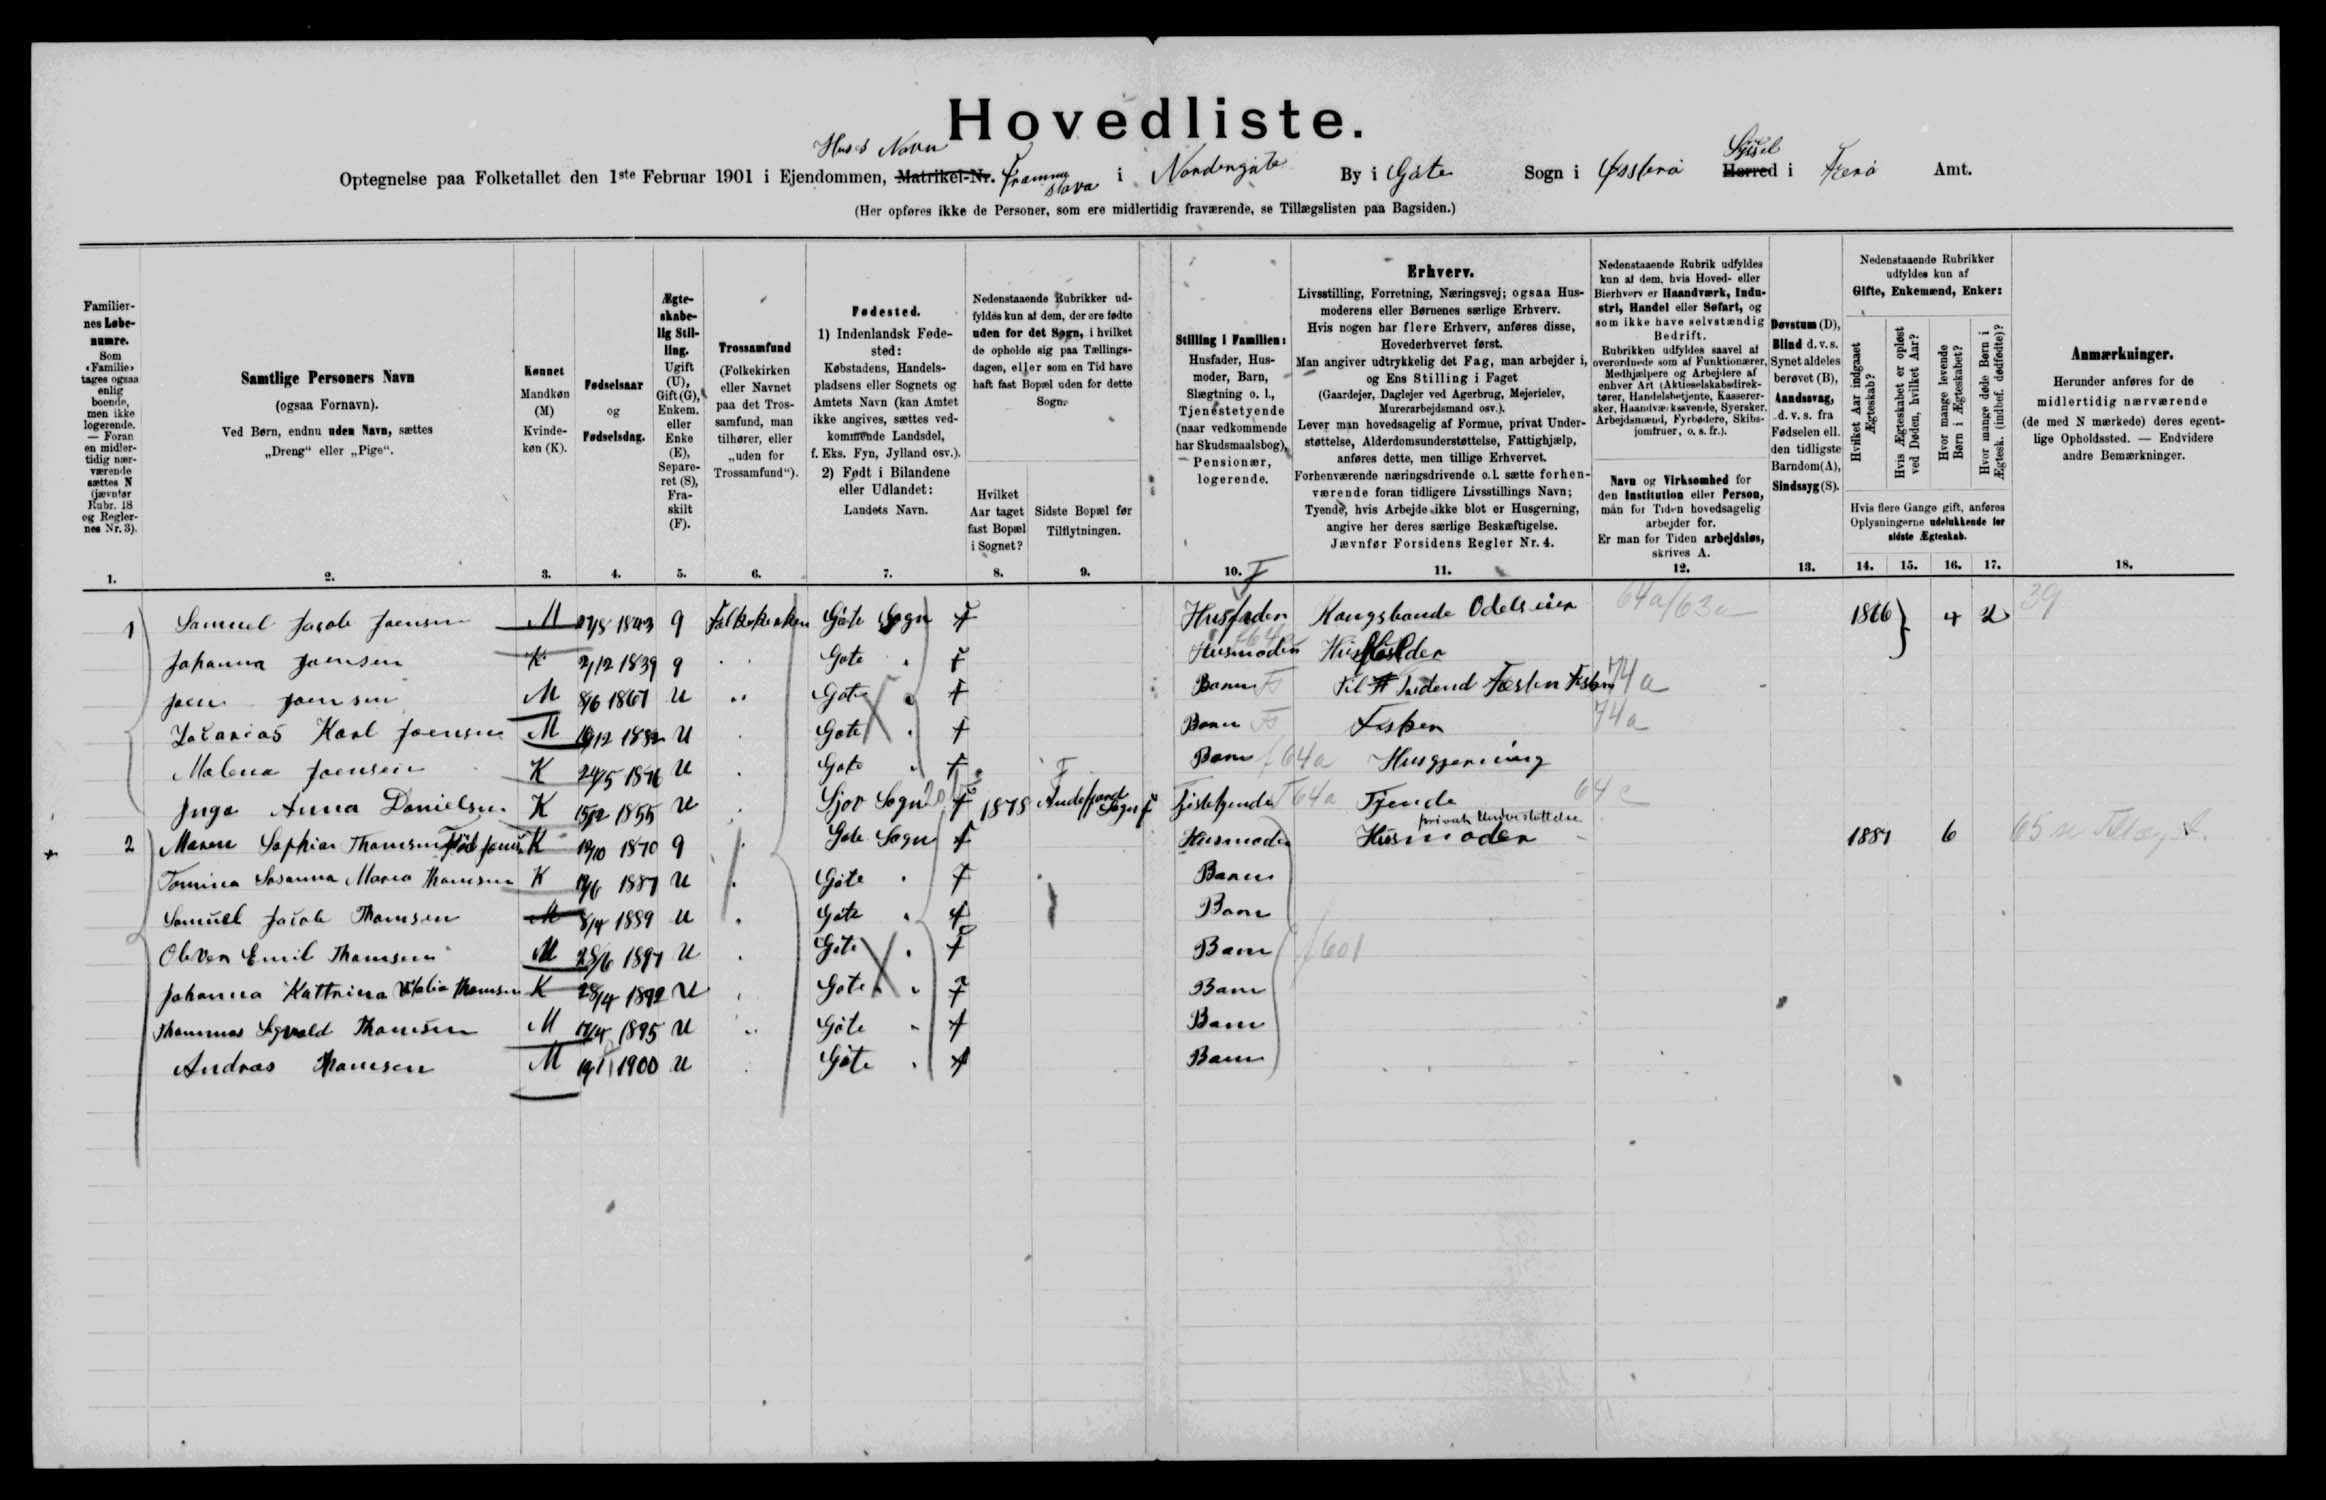 Hovedliste.
Huses Navn
Syssel
Optegnelse paa Folketallet den 1ste Februar 1901 i Ejendommen, Matrikel-Nr. i Nordengøte By i Gøte Sogn i Østerø Herred i Færø Amt.
(Her opføres ikke de Personer, som ere midlertidig fraværende, se Tillægslisten paa Bagsiden.)
Familiernes Løbenumre.
Som «Familie» tages ogsaa enlig boende, men ikke logerende. — Foran en midlertidig nærværende sættes N (jævnfør Rubr. 18 og Reglernes Nr. 3).
Samtlige Personers Navn
(ogsaa Fornavn).
Ved Børn, endnu uden Navn, sættes
„Dreng“ eller „Pige“.
Kønnet
Mandkøn (M)
Kvindekøn (K).
Fødselsaar
og
Fødselsdag.
Ægteskabelig Stilling.
Ugift (U), Gift (G), Enkem. eller Enke (E), Separeret (S), Fraskilt (F).
Trossamfund
(Folkekirken eller Navnet paa det Trossamfund, man tilhører, eller „uden for Trossamfund“).
Fødested.
1) Indenlandsk Fødested:
Købstadens, Handelspladsens eller Sognets og Amtets Navn (kan Amtet ikke angives, sættes vedkommende Landsdel, f. Eks. Fyn, Jylland osv.).
2) Født i Bilandene eller Udlandet:
Landets Navn.
Nedenstaaende Rubrikker udfyldes kun af dem, der ere fødte uden for det Sogn, i hvilket de opholde sig paa Tællingsdagen, eller som en Tid have haft fast Bopæl uden for dette Sogn.
Hvilket Aar taget fast Bopæl i Sognet?
Sidste Bopæl før Tilflytningen.
Stilling i Familien:
Husfader, Husmoder, Barn, Slægtning o. l., Tjenestetyende (naar vedkommende har Skudsmaalsbog), — Pensionær, logerende.
Erhverv.
Livsstilling, Forretning, Næringsvej; ogsaa Husmoderens eller Børnenes særlige Erhverv.
Hvis nogen har flere Erhverv, anføres disse, Hovederhvervet først.
Man angiver udtrykkelig det Fag, man arbejder i, og Ens Stilling i Faget
(Gaardejer, Daglejer ved Agerbrug, Mejerielev, Murerarbejdsmand osv.).
Lever man hovedsagelig af Formue, privat Understøttelse, Alderdomsunderstøttelse, Fattighjælp, anføres dette, men tillige Erhvervet.
Forhenværende næringsdrivende o.l. sætte forhenværende foran tidligere Livsstillings Navn;
Tyende, hvis Arbejde ikke blot er Husgerning, angive her deres særlige Beskæftigelse.
Jævnfør Forsidens Regler Nr. 4.
Nedenstaaende Rubrik udfyldes kun af dem, hvis Hoved- eller Bierhverv er Haandværk, Industri, Handel eller Søfart, og som ikke have selvstændig Bedrift.
Rubrikken udfyldes saavel af overordnede som af Funktionærer, Medhjælpere og Arbejdere af enhver Art (Aktieselskabsdirektører, Handelsbetjente, Kasserersker, Haandværkssvende, Syersker, Arbejdsmænd, Fyrbødere, Skibsjomfruer, o. s. fr.).
Navn og Virksomhed for den Institution eller Person, man for Tiden hovedsagelig arbejder for.
Er man for Tiden arbejdsløs, skrives A.
Døvstum (D), Blind d. v. s. Synet aldeles berøvet (B), Aandssvag, d. v. s. fra Fødselen ell. den tidligste Barndom (A), Sindssyg (S).
Nedenstaaende Rubrikker udfyldes kun af
Gifte, Enkemænd, Enker:
Hvilket Aar indgaaet Ægteskab?
Hvis Ægteskabet er opløst ved Døden, hvilket Aar?
Hvor mange levende Børn i Ægteskabet?
Hvor mange døde Børn i Ægtesk. (indbef. dødfødte)?
Hvis flere Gange gift, anføres Oplysningerne udelukkende for sidste Ægteskab.
Anmærkninger.
Herunder anføres for de midlertidig nærværende (de med N mærkede) deres egentlige Opholdssted. — Endvidere andre Bemærkninger.
1. 2. 3. 4. 5. 6. 7. 8. 9. 10. 11. 12. 13. 14. 15. 16. 17. 18.
1 Samuel Jacob Joensen M 1843 g Folkekirken Gøte Sogn F Husfader Kongsbonde Odelseier 64a/63a 1866 4 2 39
Johanna Joensen K 2/12 1839 g Gøte F Husmoder
Joen Joensen M 8/6 1867 U Gøte F Barn Fs 74a
Zacarias Karl Joensen M U Gøte F Barn Fs Fisker 74a
Malena Joensen K 24/5 1876 U Gøte F Barn f 64a Husgjerning
Inga Anna Danielsen K 1855 U Sjov Sogn F 1878 Sogn F T 64a Tjende 64c
privat Understøttelse
2 Maren Sophia Thomsen Født K 19/10 1870 g Gøte Sogn F Husmoder Husmoder 1887 6 65
Tomina Susanna Maria Thomsen K 1887 U Gøte F Barn
Samuel Jacob Thomsen M 8/4 1889 U Gøte F Barn
Oliver Emil Thomsen M 28/6 1897 U Gøte F Barn f 601
Johanna Kattrina Thomsen K 28/4 1892 U Gøte F Barn
Thommas Sigvald Thomsen M 1895 U Gøte F Barn
Andreas Thomsen M 1900 U Gøte F Barn